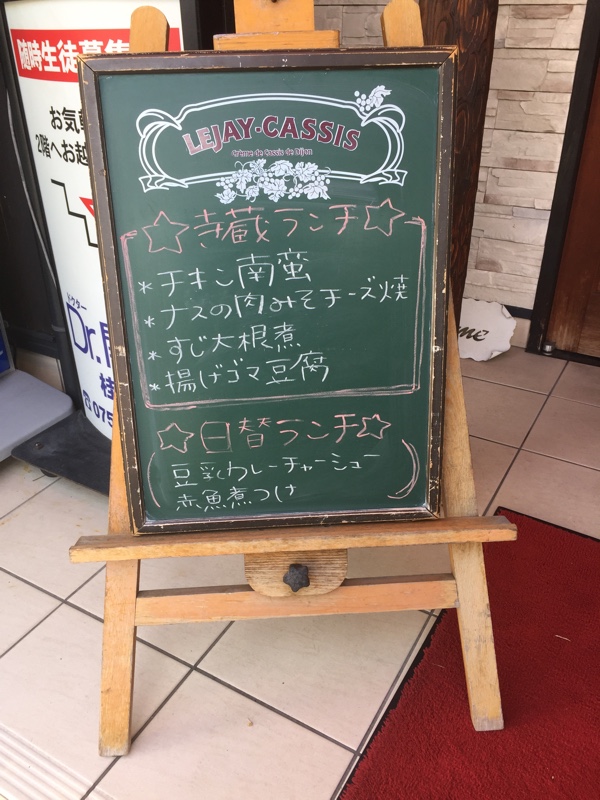 随時生徒募集
お気
2階へお越
ドクター
Dr.
075
LEJAY-CASSIS
Crème de Cassis de Dijon
☆寺蔵ランチ☆
*チキン南蛮
*ナスの肉みそチーズ焼
*すじ大根煮
*揚げゴマ豆腐
☆日替ランチ☆
豆乳カレーチャーシュー
赤魚煮つけ
me